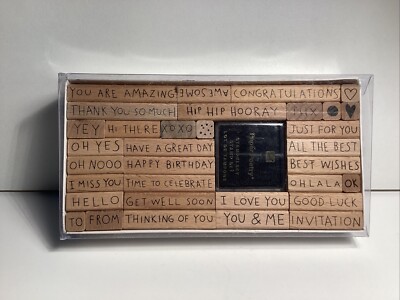 YOU ARE AMAZING AWESOME CONGRATULATIONS
THANK YOU SO MUCH HIP HIP HOORAY
YEY HI THERE XOXO JUST FOR YOU
OH YES HAVE A GREAT DAY ALL THE BEST
OH NOOO HAPPY BIRTHDAY BEST WISHES
I MISS YOU TIME TO CELEBRATE OH LA LA OK
HELLO GET WELL SOON I LOVE YOU GOOD LUCK
TO FROM THINKING OF YOU YOU & ME INVITATION